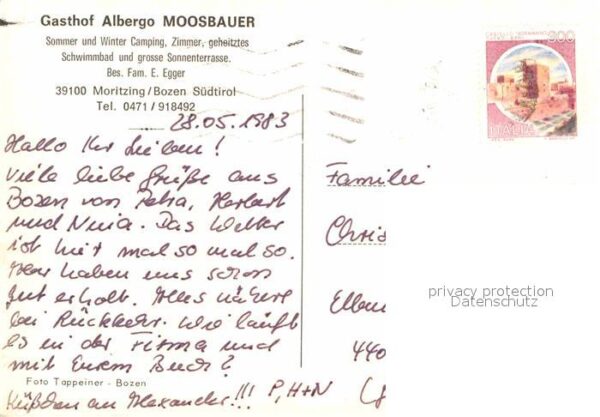 Gasthof Albergo MOOSBAUER
Sommer und Winter Camping, Zimmer, geheiztes
Schwimmbad und grosse Sonnenterrasse.
Bes. Fam. E. Egger
39100 Moritzing/Bozen Südtirol
Tel. 0471/918492
28.05.1983
Hallo Ihr Lieben!
Viele liebe Grüße aus
Bozen von Petra, Herbert
und Nina. Das Wetter
ist hier mal so mal so.
Aber haben uns schon
gut erholt. Alles nähere
bei Rückkehr. Wie läuft
es in der Firma und
mit Eurem Buch?
Foto Tappeiner - Bozen
Küßchen an Alexander!!! P, H+N
800
ITALIA
Familie
Chris
Ellen
440
privacy protection
Datenschutz